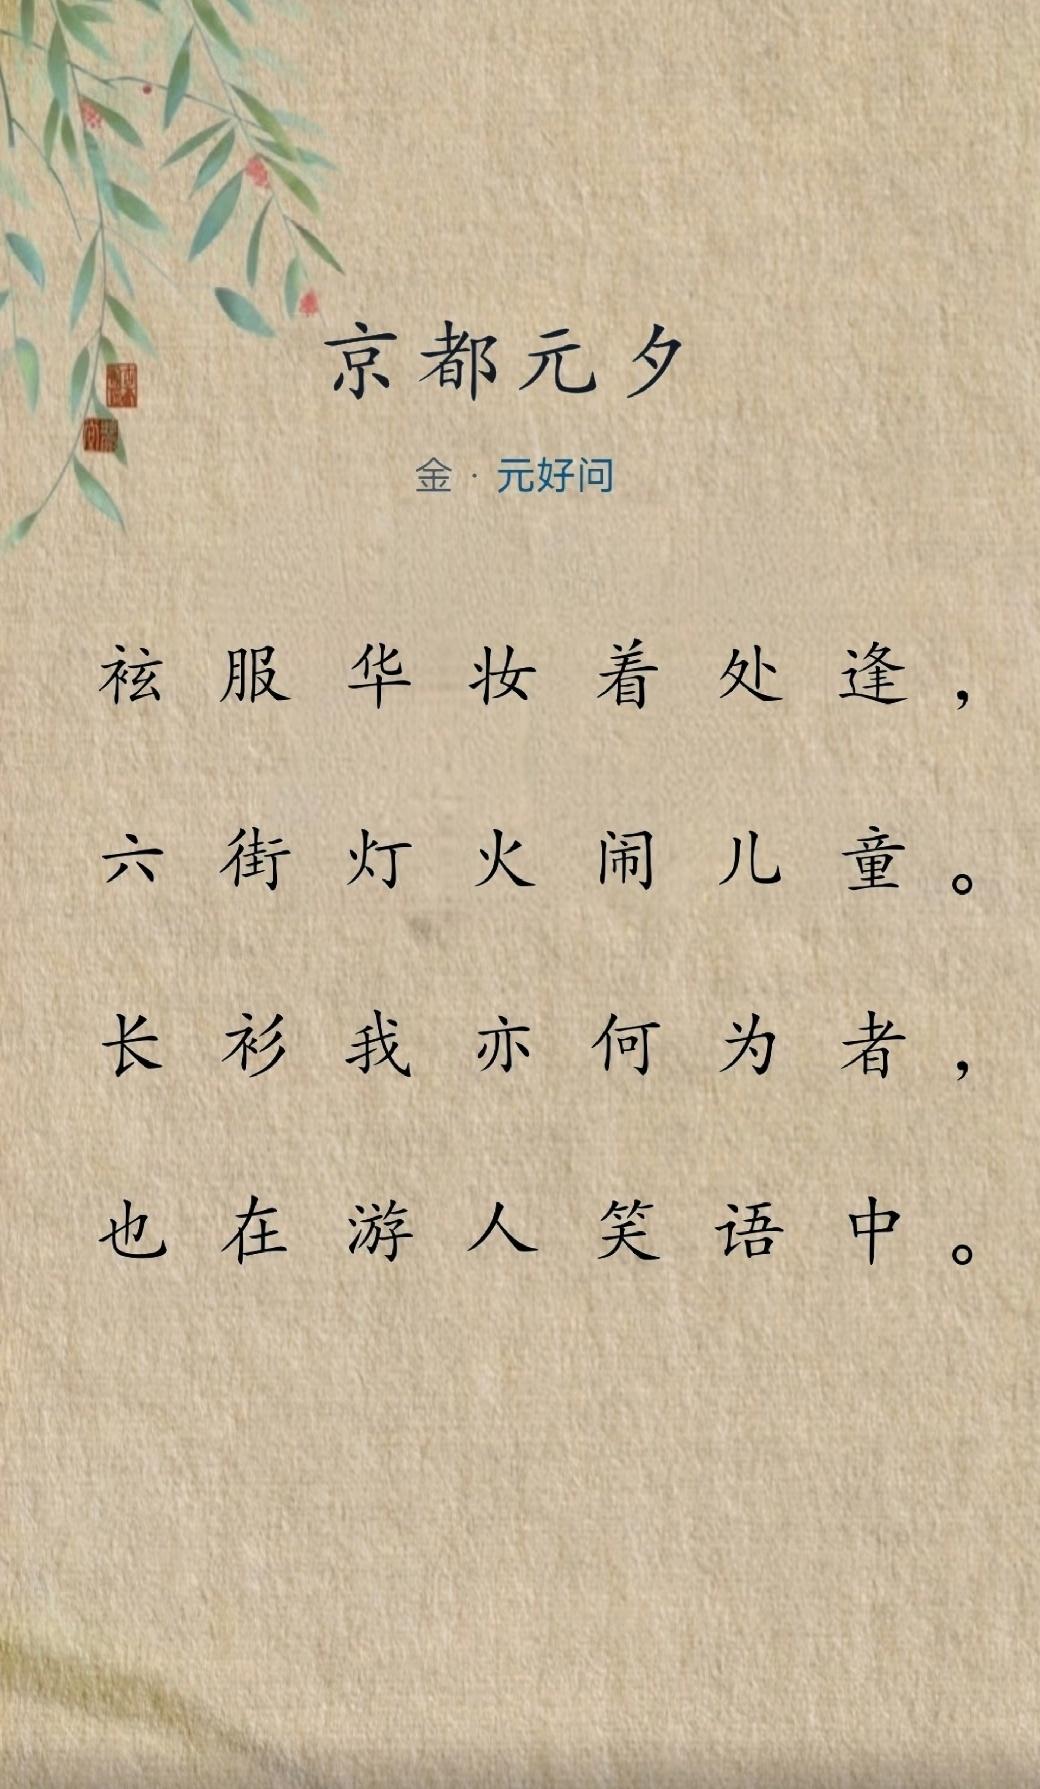 京都元夕
金·元好问
袨服华妆着处逢，
六街灯火闹儿童。
长衫我亦何为者，
也在游人笑语中。